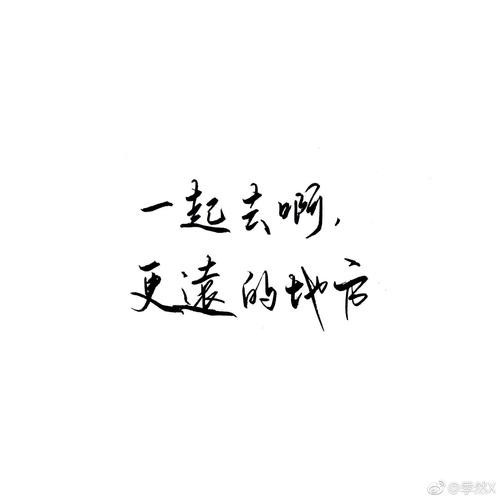 一起去啊,
更遠的地方
@季然X